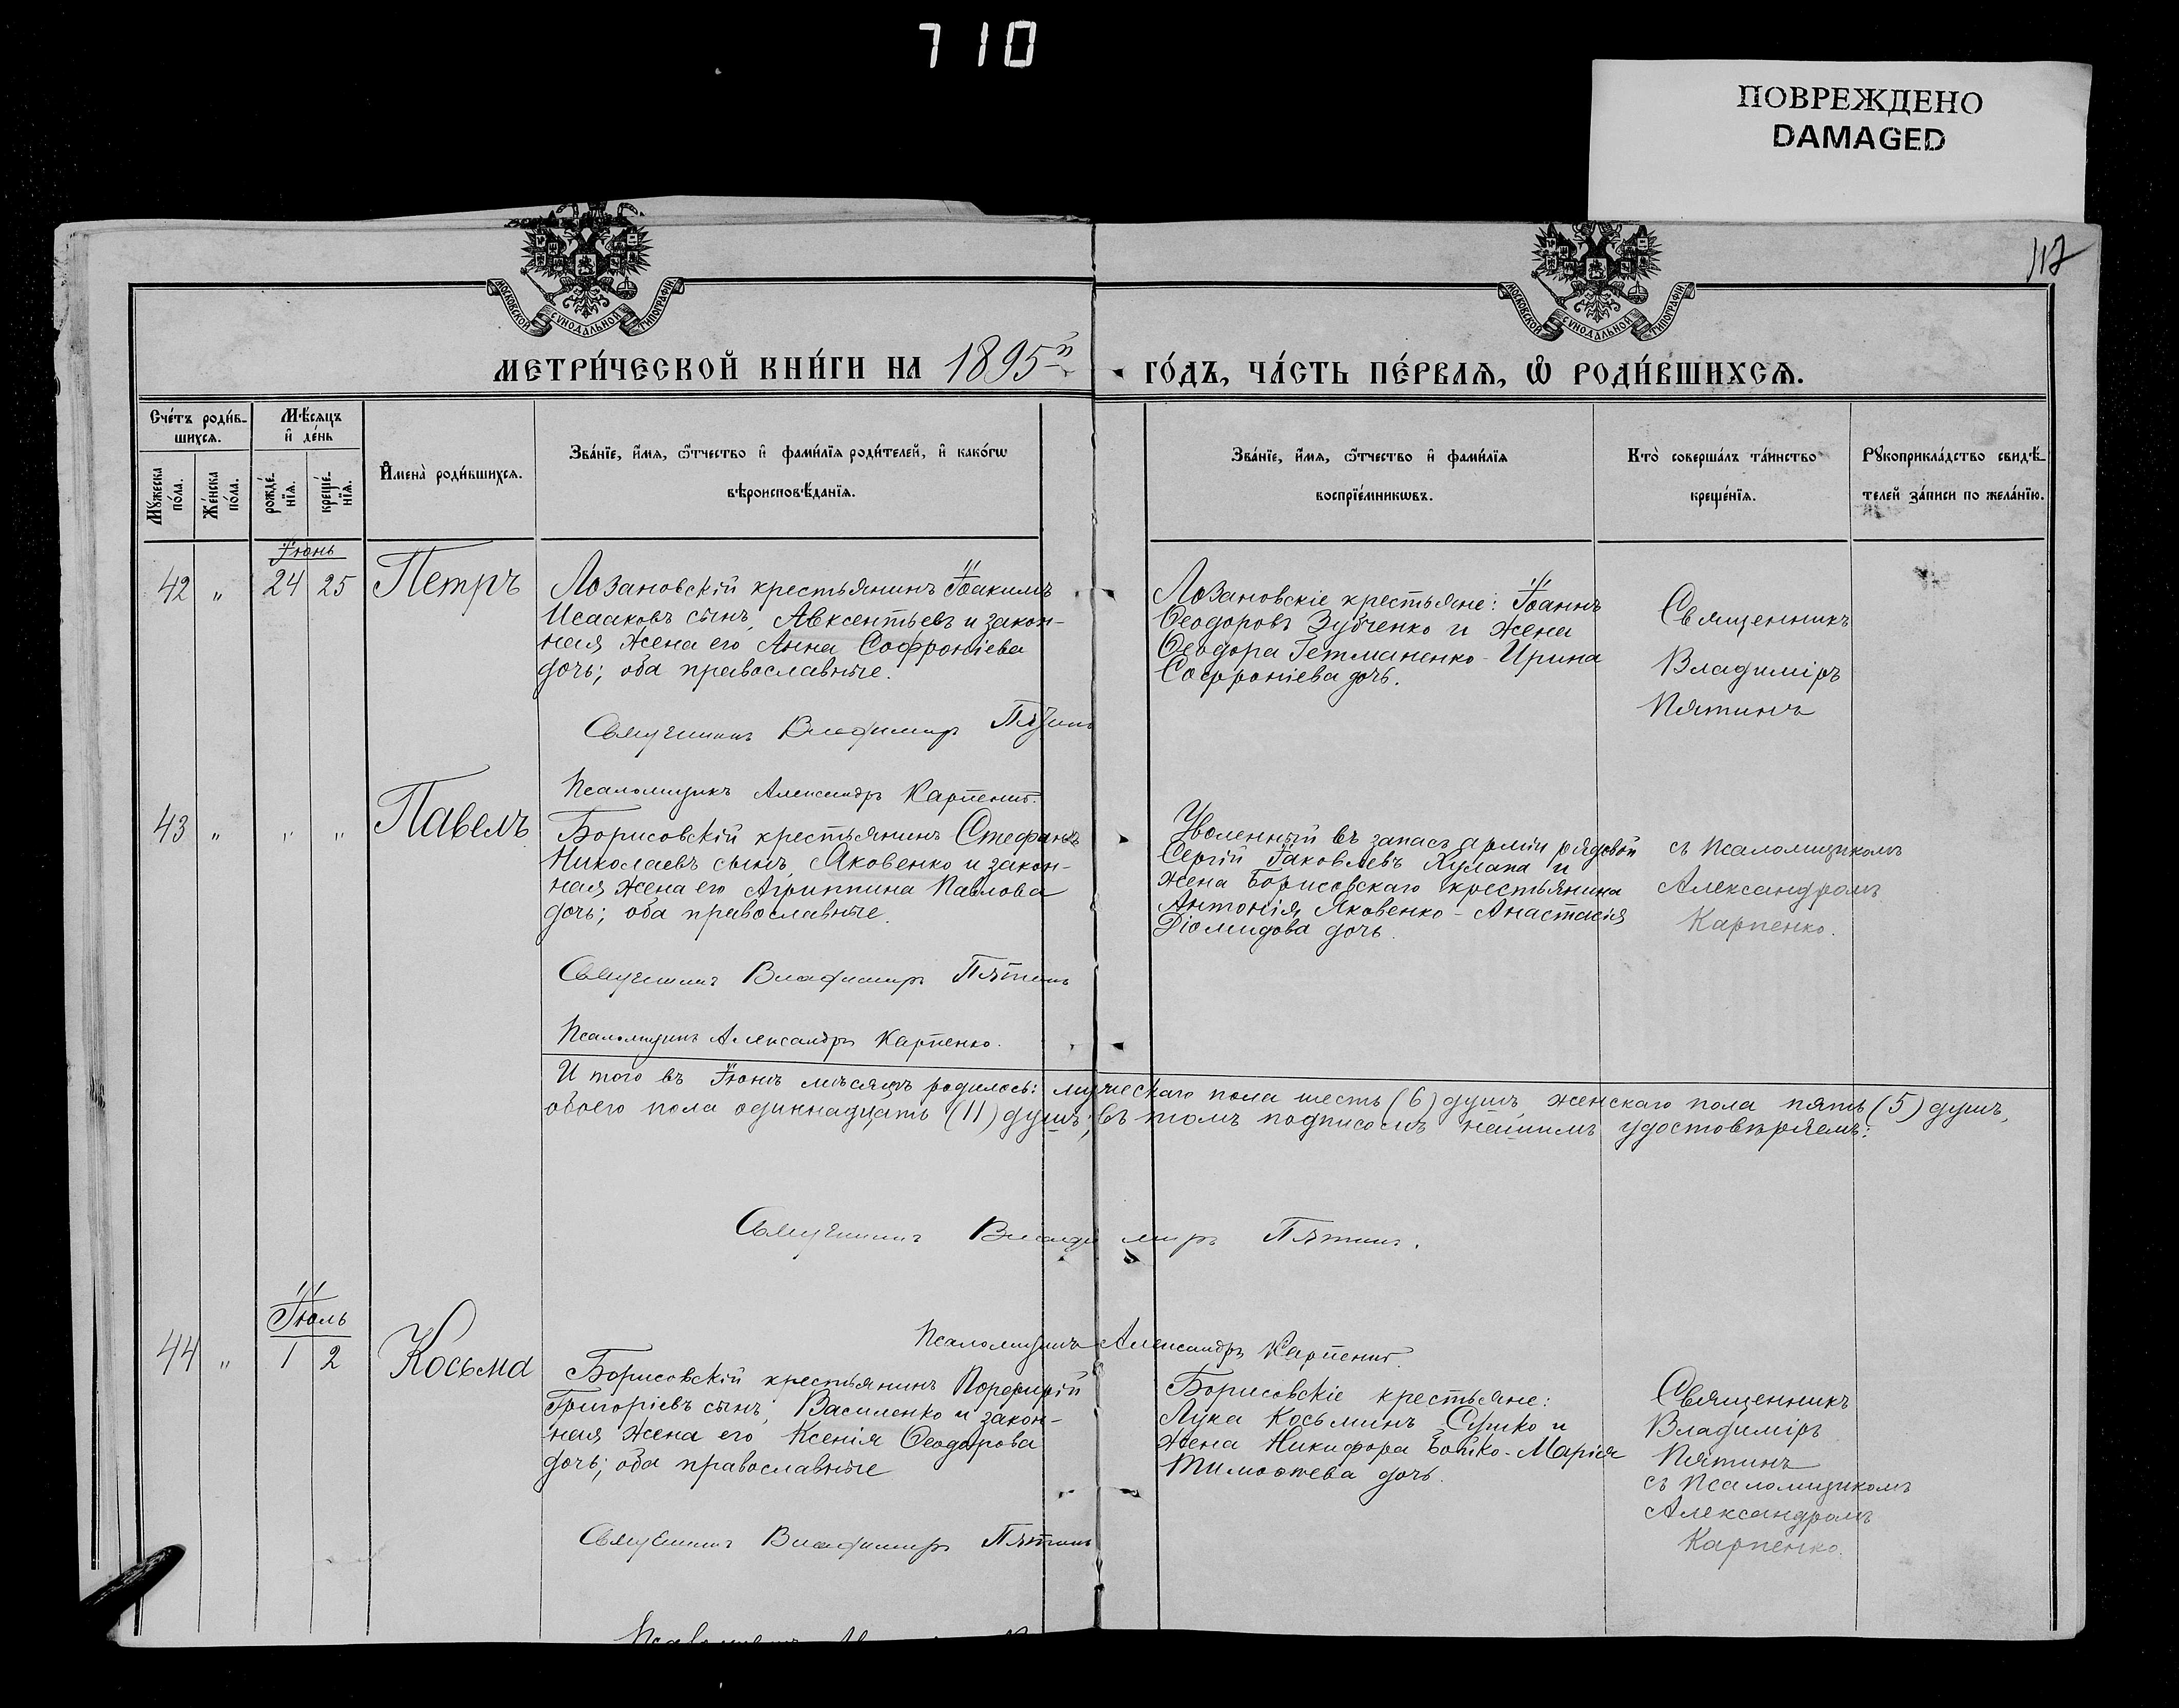 710
ПОВРЕЖДЕНО
DAMAGED
117
МОСКОВСКОЙ СѴНОДАЛЬНОЙ ТИПОГРАФІИ
МОСКОВСКОЙ СѴНОДАЛЬНОЙ ТИПОГРАФІИ
МЕТРИ́ЧЕСКОЙ КНИ́ГИ НА 1895й ГО́ДЪ, ЧА́СТЬ ПЕ́РВАѦ, Ѡ҆ РОДИ́ВШИХСѦ.
Сче́тъ роди́в-
шихсѧ.
Мꙋ́жеска по́ла.
Же́нска по́ла.
Мѣ́сѧцъ
и҆ де́нь
рожде́-
нїѧ.
креще́-
нїѧ.
И҆мена̀ роди́вшихсѧ.
Зва́нїе, и҆́мѧ, ѻ҆́тчество и҆ фами́лїѧ роди́телей, и҆ како́гѡ
вѣроисповѣ́данїѧ.
Зва́нїе, и҆́мѧ, ѻ҆́тчество и҆ фами́лїѧ
воспрїе́мникѡвъ.
Кто̀ соверша́лъ та́инство
креще́нїѧ.
Рꙋкоприкла́дство свидѣ́-
телей за́писи по жела́нїю.
Іюнь
42 " 24 25 Петръ
Лозановскій крестьянинъ Іоакимъ
Исааковъ сынъ, Авксентьевъ и закон-
ная жена его Анна Софроніева
дочь; оба православные.
Священникъ Владимиръ Пятинъ
Псаломщикъ Александръ Карпенко.
Лозановскіе крестьяне: Іоаннъ
Ѳеодоровъ Зубченко и жена
Ѳеодора Гетманенко - Ирина
Софроніева дочь.
Священникъ
Владиміръ
Пятинъ
43 " " " Павелъ
Борисовскій крестьянинъ Стефанъ
Николаевъ сынъ, Яковенко и закон-
ная жена его Агриппина Павлова
дочь; оба православные.
Священникъ Владимиръ Пятинъ
Псаломщикъ Александръ Карпенко.
Уволенный въ запасъ арміи рядовой
Сергій Іаковлевъ Кулапа и
жена Борисовскаго крестьянина
Антонія Яковенко - Анастасія
Діомидова дочь.
съ Псаломщикомъ
Александромъ
Карпенко.
И того въ Іюнѣ мѣсяцѣ родилось: мужескаго пола шесть (6) душъ, женскаго пола пять (5) душъ,
обоего пола одиннадцать (11) душъ; въ томъ подписомъ нашимъ удостовѣряемъ:
Священникъ Владимиръ Пятинъ.
Псаломщикъ Александръ Карпенко.
Іюль
44 " 1 2 Косьма
Борисовскій крестьянинъ Порфирій
Григоріевъ сынъ, Василенко и закон-
ная жена его Ксенія Ѳеодорова
дочь; оба православные
Священникъ Владимиръ Пятинъ
Борисовскіе крестьяне:
Лука Косьминъ Сушко и
жена Никифора Бойко - Марія
Тимоѳеева дочь.
Священникъ
Владиміръ
Пятинъ
съ Псаломщикомъ
Александромъ
Карпенко.